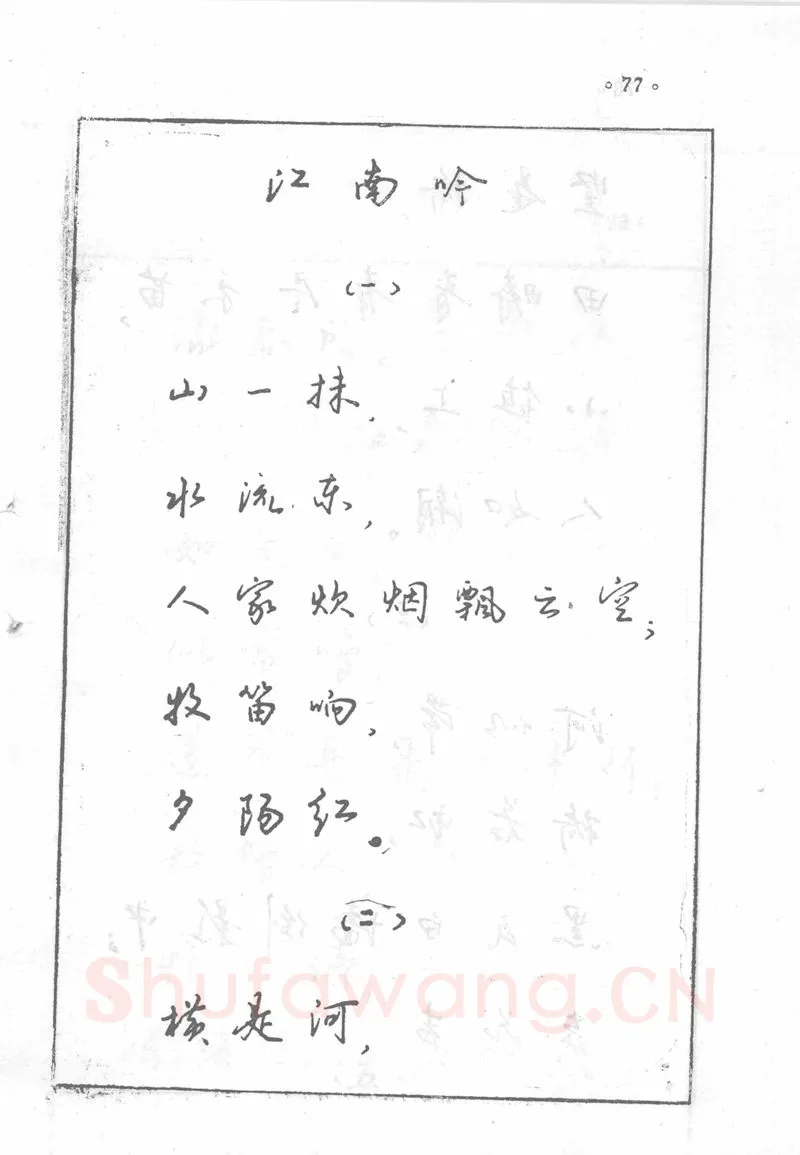 。77。
江南吟
(一)
山一抹,
水流东,
人家炊烟飘云空;
牧笛响,
夕阳红。
(二)
横是河,
Shufawang.CN